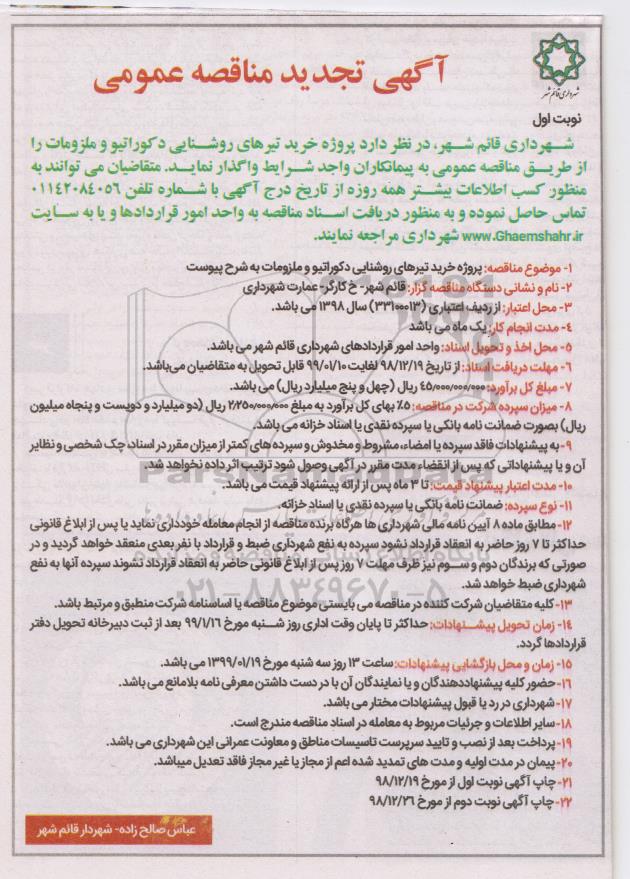 شهرداری قائم شهر
آگهی تجدید مناقصه عمومی
نوبت اول
شهرداری قائم شهر، در نظر دارد پروژه خرید تیرهای روشنایی دکوراتیو و ملزومات را
از طریق مناقصه عمومی به پیمانکاران واجد شرایط واگذار نماید. متقاضیان می توانند به
منظور کسب اطلاعات بیشتر همه روزه از تاریخ درج آگهی با شماره تلفن ۰۱۱۴۲۰۸۴۰۵۶
تماس حاصل نموده و به منظور دریافت اسناد مناقصه به واحد امور قراردادها و یا به سایت
www.Ghaemshahr.ir شهرداری مراجعه نمایند.
۱- موضوع مناقصه: پروژه خرید تیرهای روشنایی دکوراتیو و ملزومات به شرح پیوست
۲- نام و نشانی دستگاه مناقصه گزار: قائم شهر- خ کارگر- عمارت شهرداری
۳- محل اعتبار: از ردیف اعتباری (۳۳۱۰۰۰۱۳) سال ۱۳۹۸ می باشد.
۴- مدت انجام کار: یک ماه می باشد
۵- محل اخذ و تحویل اسناد: واحد امور قراردادهای شهرداری قائم شهر می باشد.
۶- مهلت دریافت اسناد: از تاریخ ۹۸/۱۲/۱۹ لغایت ۹۹/۰۱/۱۰ قابل تحویل به متقاضیان می‌باشد.
۷- مبلغ کل برآورد: ۴۵/۰۰۰/۰۰۰/۰۰۰ ریال (چهل و پنج میلیارد ریال) می باشد.
۸- میزان سپرده شرکت در مناقصه: ۵٪ بهای کل برآورد به مبلغ ۲/۲۵۰/۰۰۰/۰۰۰ ریال (دو میلیارد و دویست و پنجاه میلیون
ریال) بصورت ضمانت نامه بانکی یا سپرده نقدی یا اسناد خزانه می باشد.
۹- به پیشنهادات فاقد سپرده یا امضاء، مشروط و مخدوش و سپرده های کمتر از میزان مقرر در اسناد، چک شخصی و نظایر
آن و یا پیشنهاداتی که پس از انقضاء مدت مقرر در آگهی وصول شود ترتیب اثر داده نخواهد شد.
۱۰- مدت اعتبار پیشنهاد قیمت: تا ۳ ماه پس از ارائه پیشنهاد قیمت می باشد.
۱۱- نوع سپرده: ضمانت نامه بانکی یا سپرده نقدی یا اسناد خزانه.
۱۲- مطابق ماده ۸ آیین نامه مالی شهرداری ها هرگاه برنده مناقصه از انجام معامله خودداری نماید یا پس از ابلاغ قانونی
حداکثر تا ۷ روز حاضر به انعقاد قرارداد نشود سپرده به نفع شهرداری ضبط و قرارداد با نفر بعدی منعقد خواهد گردید و در
صورتی که برندگان دوم و سوم نیز ظرف مهلت ۷ روز پس از ابلاغ قانونی حاضر به انعقاد قرارداد نشوند سپرده آنها به نفع
شهرداری ضبط خواهد شد.
۱۳-کلیه متقاضیان شرکت کننده در مناقصه می بایستی موضوع مناقصه با اساسنامه شرکت منطبق و مرتبط باشد.
۱۴- زمان تحویل پیشنهادات: حداکثر تا پایان وقت اداری روز شنبه مورخ ۹۹/۱/۱۶ بعد از ثبت دبیرخانه تحویل دفتر
قراردادها گردد.
۱۵- زمان و محل بازگشایی پیشنهادات: ساعت ۱۳ روز سه شنبه مورخ ۱۳۹۹/۰۱/۱۹ می باشد.
۱۶-حضور کلیه پیشنهاددهندگان و یا نمایندگان آن با در دست داشتن معرفی نامه بلامانع می باشد.
۱۷-شهرداری در رد یا قبول پیشنهادات مختار می باشد.
۱۸- سایر اطلاعات و جزئیات مربوط به معامله در اسناد مناقصه مندرج است.
۱۹- پرداخت بعد از نصب و تایید سرپرست تاسیسات مناطق و معاونت عمرانی این شهرداری می باشد.
۲۰- پیمان در مدت اولیه و مدت های تمدید شده اعم از مجاز یا غیر مجاز فاقد تعدیل میباشد.
۲۱- چاپ آگهی نوبت اول از مورخ ۹۸/۱۲/۱۹
۲۲-چاپ آگهی نوبت دوم از مورخ ۹۸/۱۲/۲۶
عباس صالح زاده- شهردار قائم شهر
۰۲۱-۸۸۳۴۹۶۷۰-۵